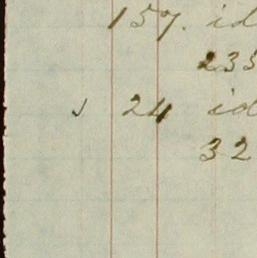 157. id
235
✓ 24 id
32